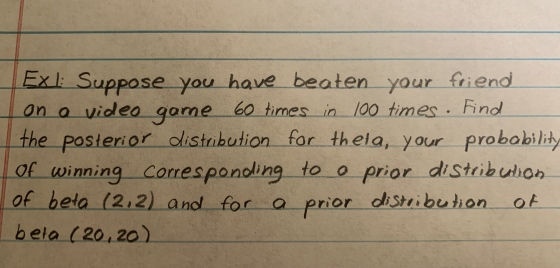 Ex1: Suppose you have beaten your friend
on a video game 60 times in 100 times. Find
the posterior distribution for theta, your probability
of winning corresponding to a prior distribution
of beta (2,2) and for a prior distribution of
beta (20,20)